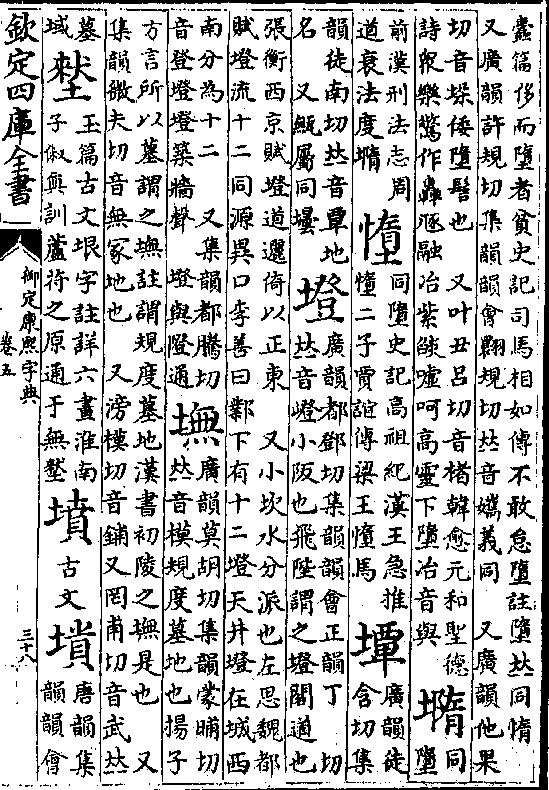 嚢篇侈而墮者貧史記司馬相如傳不敢怠墮註墮𠀤同惰
又廣韻許規切集韻韻會翾規切𠀤音𡤬義同 又廣韻他果
切音垜倭墮髻也 又叶丑呂切音楮韓愈元和聖德
詩衆樂驚作轟豗融冶紫燄噓呵高靈下墮冶音與
墯
同
墮
前漢刑法志周
道衰法度墯
憧
同墮史記高祖紀漢王急推
憧二子賈誼傳梁王憧馬
墰
廣韻徒
含切集
韻徒南切𠀤音覃地
名 又甀屬同壜
墱
廣韻都鄧切集韻韻會正韻丁 切
𠀤音嶝小阪也飛陛謂之墱閣道也
張衡西京賦墱道邐倚以正東 又小坎水分派也左思魏都
賦墱流十二同源異口李善曰鄴下有十二墱天井墱在城西
南分為十二 又集韻都騰切
音登墱墱築牆聲 墱與隥通
墲
廣韻莫胡切集韻蒙晡切
𠀤音模規度墓地也揚子
方言所以墓謂之墲註謂規度墓地漢書初陵之墲是也 又
集韻微夫切音無冢地也 又滂模切音鋪又罔甫切音武𠀤
墓
域
玉篇古文垠字註詳六畫淮南
子俶真訓蘆苻之原通于無
墳
古文
唐韻集
韻韻會
欽定四庫全書
御定康熙字典
卷五
三十八